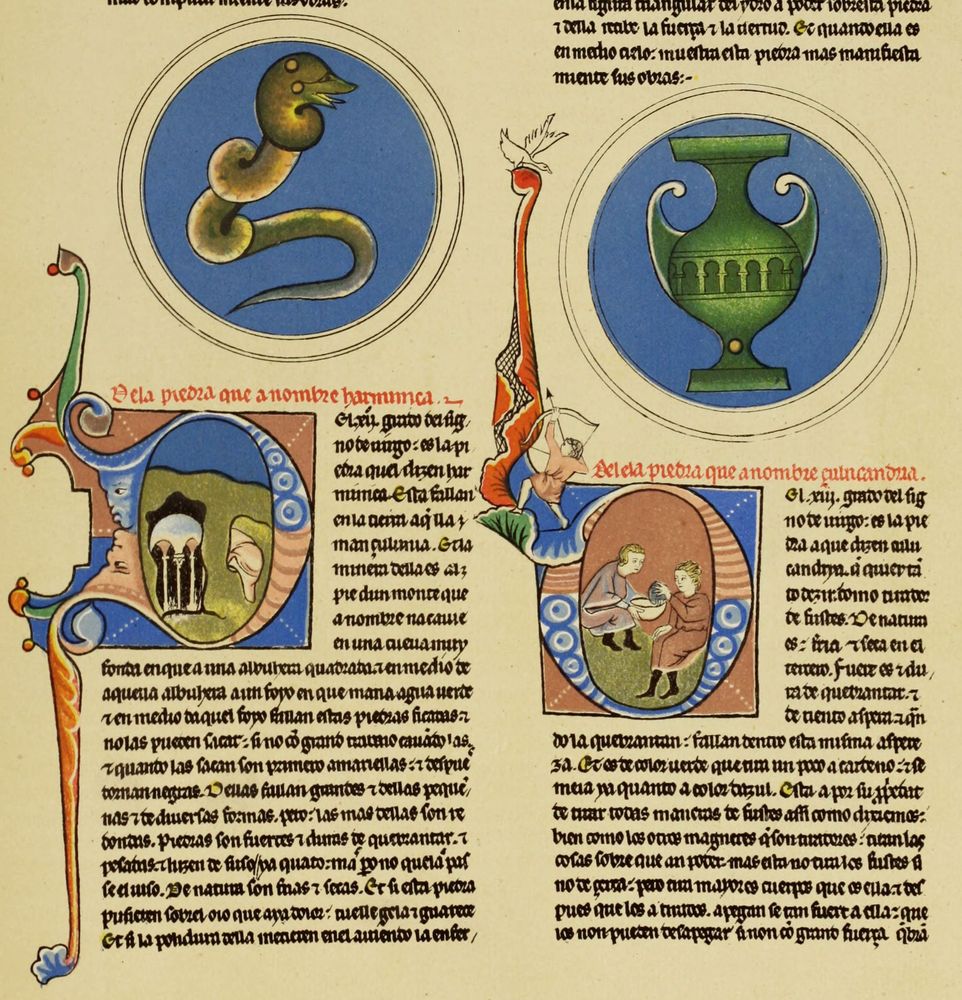 en la figura triangular del ydro a poder sobresta piedra
⁊ della recibe la fuerça ⁊ la uertud. Et quando ella es
en medio cielo: muestra esta piedra mas manifiesta
miente sus obras:-
De la piedra que a nombre harmunica.
El .xij. grado del sig
no de uirgo: es la pi
edra quel dizen har
munica. Esta fallan
en la tierra aq̃lla
man çulunia. Et la
minera della es al
pie dun monte que
a nombre nacaue
en una cueua muy
fonda en que a una albuhera quadrada: ⁊ en medio de
aquella albuhera a un foyo en que mana agua uerde
⁊ en medio daquel foyo fallan estas piedras ficadas: ⁊
no las pueden sacar: si no cõ grand trabaio cauãdo las.
⁊ quando las sacan son primero amariellas: ⁊ despues
tornan negras. Dellas fallan grandes ⁊ dellas peque
nas ⁊ de diuersas formas. pero: las mas dellas son re
dondas. Piedras son fuertes ⁊ duras de quebrantar. ⁊
pesadas. ⁊ luzen de fuso ya quanto: mas pero no quela pas
se el uiso. De natura son frias ⁊ secas. Et si esta piedra
pusieren sobrel oio que aya dolor: tuelle gela ⁊ guarece
Et si la pondura della metieren en el auiento la enfer
Dela piedra que a nombre culucandria.
El .xiij. grado del sig
no de uirgo: es la pie
dra a que dizen culu
candria. q̃ quier tã
to dezir. como tirador
de fustes. De natura
es fria ⁊ seca en el
tercero. Fuert es ⁊ du
ra de quebrantar. ⁊
de tiento aspera: ⁊ q̃n
do la quebrantan: fallan dentro essa misma aspere
za. Et es de color uerde que tira un poco a cardeno: ⁊ se
meia ya quanto a color dazul. Esta a por su ꝓpriedat
de tirar todas maneras de fustes assi como dixiemos:
bien como los otros magnetes q̃ son tiradores: tiran las
cosas sobre que an poder. mas esta no tira los fustes si
no de cerca: pero tira mayores cuerpos que es ella: ⁊ des
pues que los a tirados. apegan se tan fuert a ella: que
los non pueden desapegar si non cõ grand fuerça